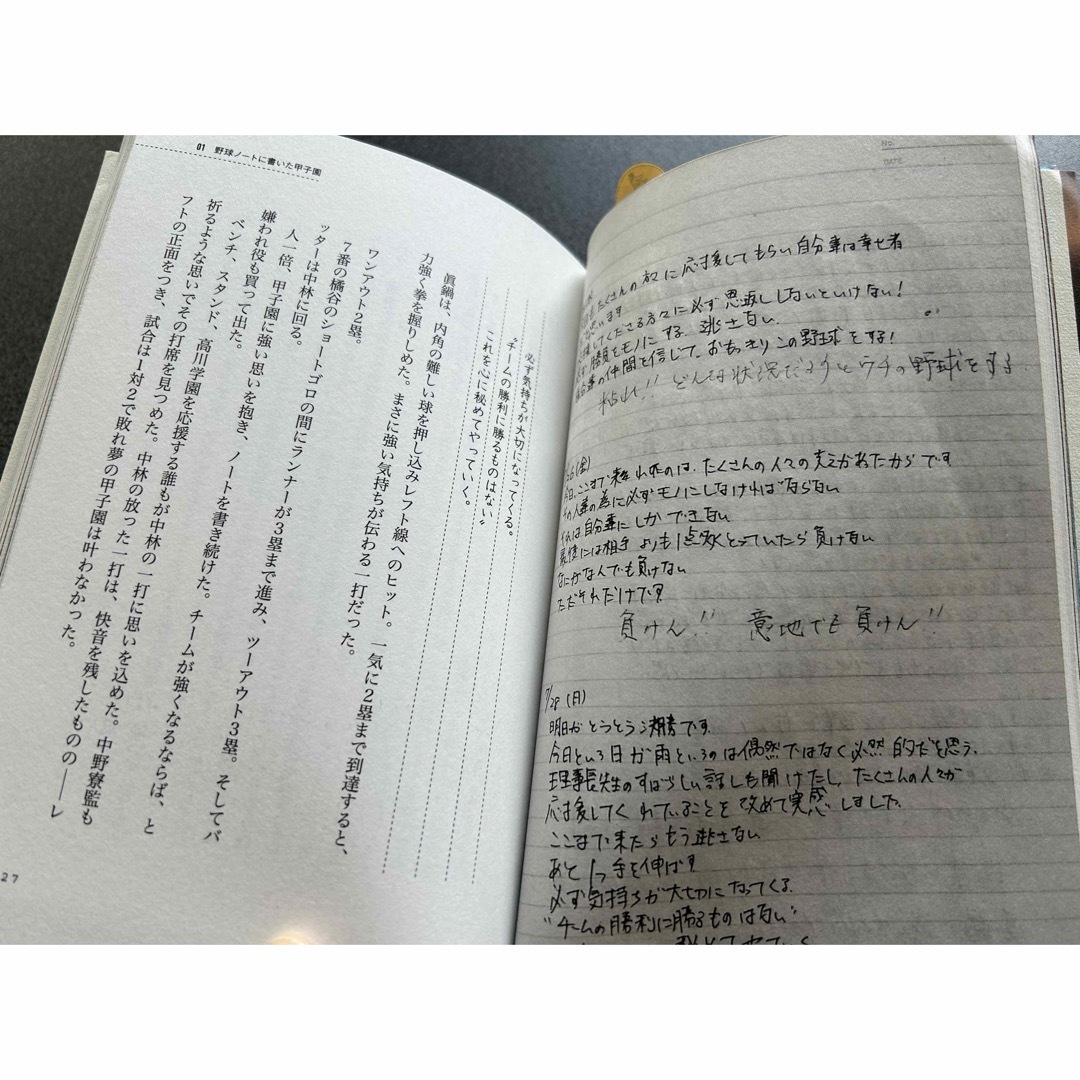 01 野球ノートに書いた甲子園
必ず気持ちが大切になってくる。
“チームの勝利に勝るものはない”
これを心に秘めてやっていく。
眞鍋は、内角の難しい球を押し込みレフト線へのヒット。一気に2塁まで到達すると、
力強く拳を握りしめた。まさに強い気持ちが伝わる一打だった。
ワンアウト2塁。
7番の橘谷のショートゴロの間にランナーが3塁まで進み、ツーアウト3塁。そしてバ
ッターは中林に回る。
人一倍、甲子園に強い思いを抱き、ノートを書き続けた。チームが強くなるならば、と
嫌われ役も買って出た。
ベンチ、スタンド、高川学園を応援する誰もが中林の一打に思いを込めた。中野寮監も
祈るような思いでその打席を見つめた。中林の放った一打は、快音を残したものの――レ
フトの正面をつき、試合は1対2で敗れ夢の甲子園は叶わなかった。
27
No.
DATE
たくさんの方々に応援してもらい自分達は幸せ者
思います
してくださる方々に必ず恩返ししないといけない!
勝負をモノにする 逃さない
の仲間を信じて、おもいきりこの野球をする!
粘れ!! どんな状況だろうとウチの野球をする
(金)
今日、ここまで来れたのは、たくさんの人々の支えがあたからです
その人達の為に必ずモノにしなければならない
それは自分達にしかできない
最後には相手よりも1点多くとっていたら負けない
なにがなんでも負けない
ただそれだけです
負けん!! 意地でも負けん!!
7/28(月)
明日がとうとう決勝です
今日という日が雨というのは偶然ではなく必然的だと思う。
理事長先生のすばらしい話しも聞けたし、たくさんの人々が
応援してくれていることを改めて実感しました。
ここまで来たらもう逃さない
あと1つ手を伸ばす
必ず気持ちが大切になってくる
“チームの勝利に勝るものは百い”